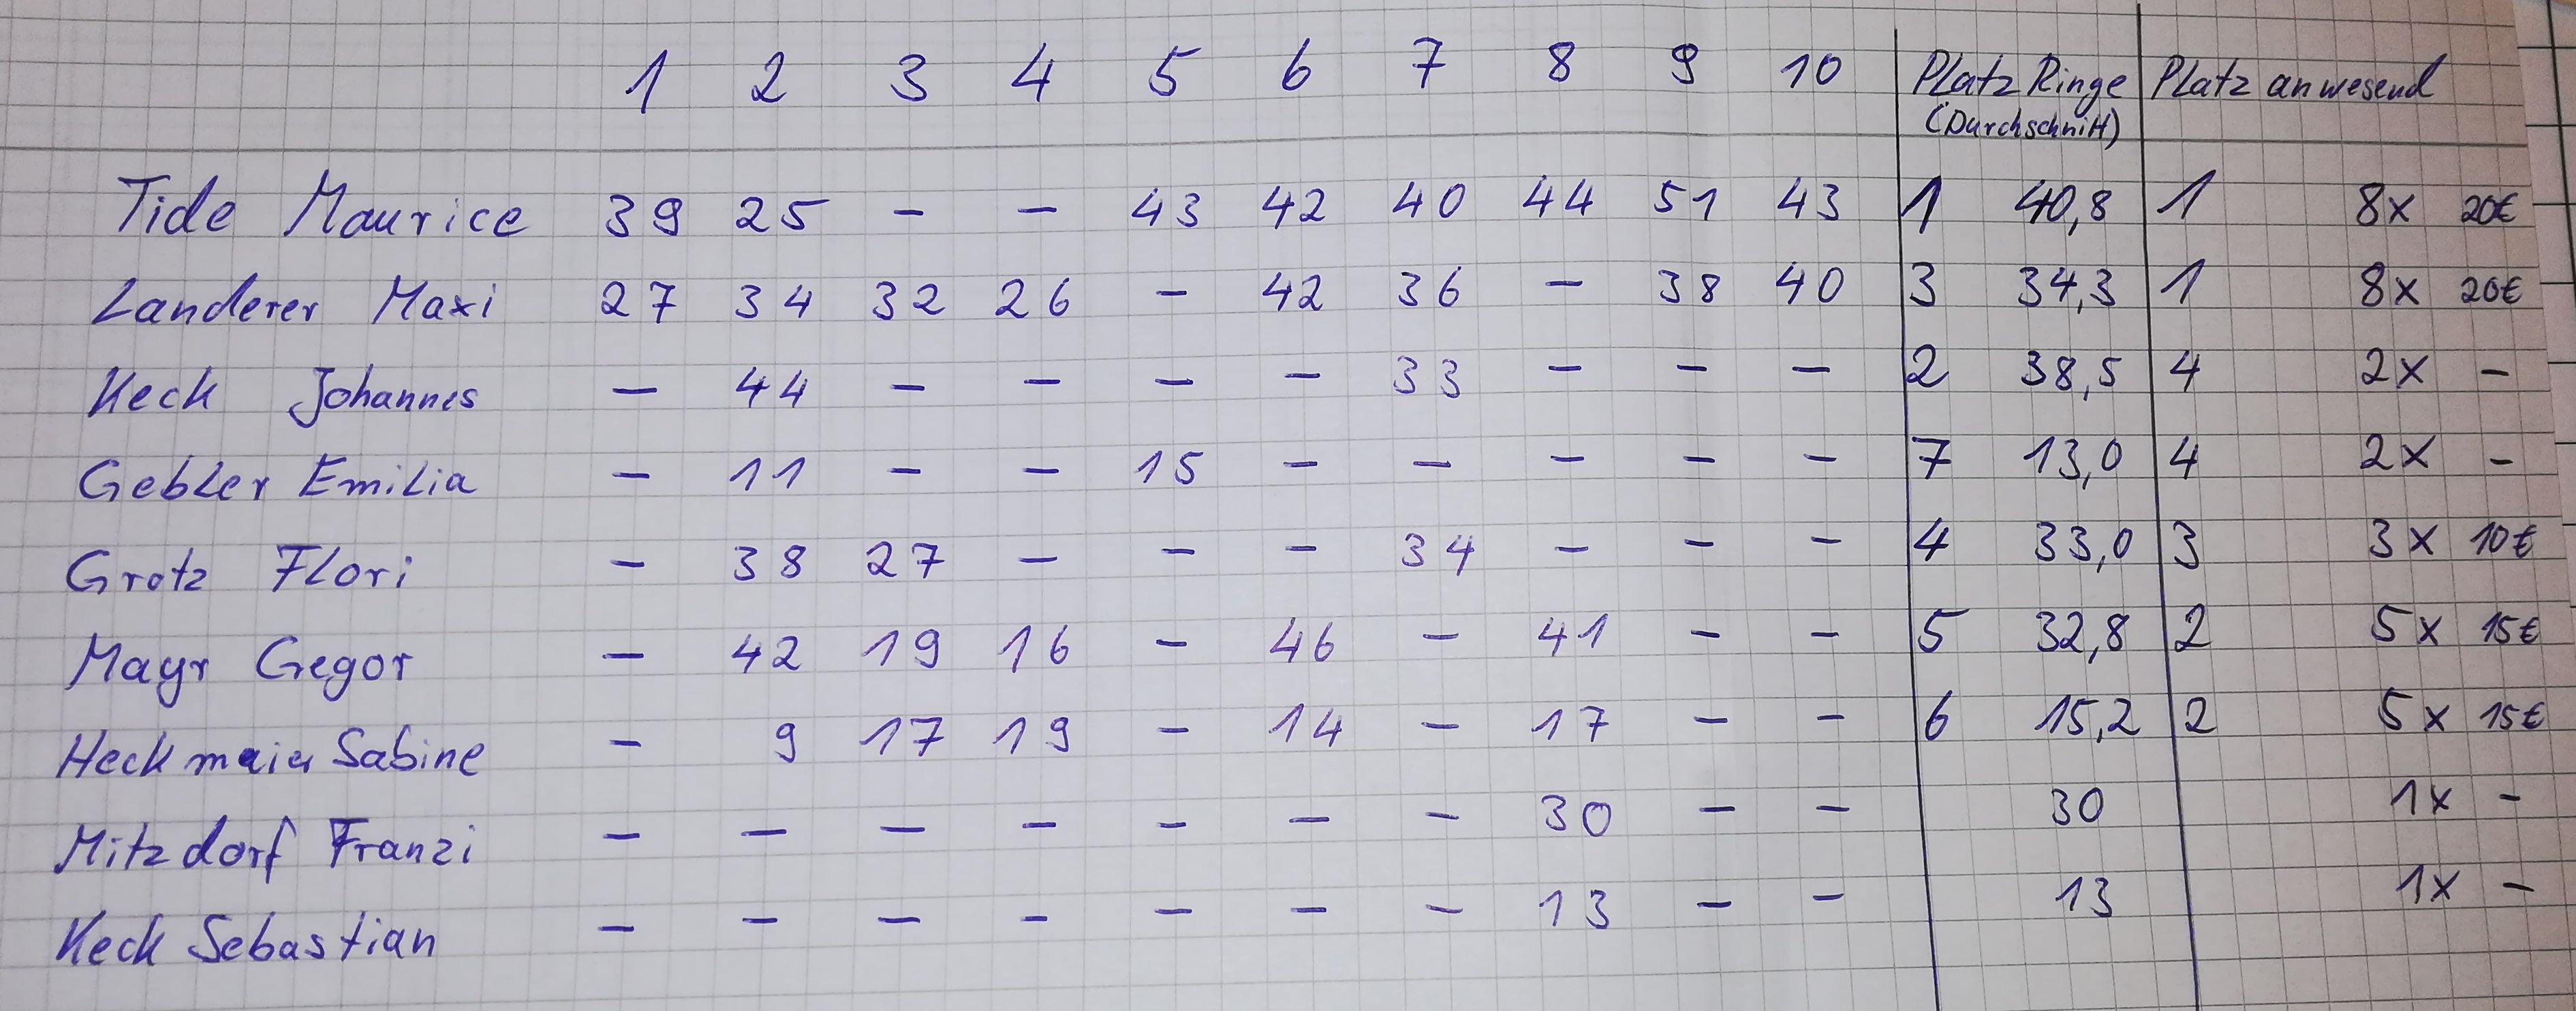 1 2 3 4 5 6 7 8 9 10 Platz Ringe Platz anwesend
(Durchschnitt)
Tide Maurice 39 25 - - 43 42 40 44 51 43 1 40,8 1 8x 20€
Landerer Maxi 27 34 32 26 - 42 36 - 38 40 3 34,3 1 8x 20€
Keck Johannes - 44 - - - - 33 - - - 2 38,5 4 2x -
Gebler Emilia - 11 - - 15 - - - - - 7 13,0 4 2x -
Grotz Flori - 38 27 - - - 34 - - - 4 33,0 3 3x 10€
Mayr Gegor - 42 19 16 - 46 - 41 - - 5 32,8 2 5x 15€
Heckmaier Sabine - 9 17 19 - 14 - 17 - - 6 15,2 2 5x 15€
Mitzdorf Franzi - - - - - - - 30 - - 30 1x -
Keck Sebastian - - - - - - - 13 - - 13 1x -